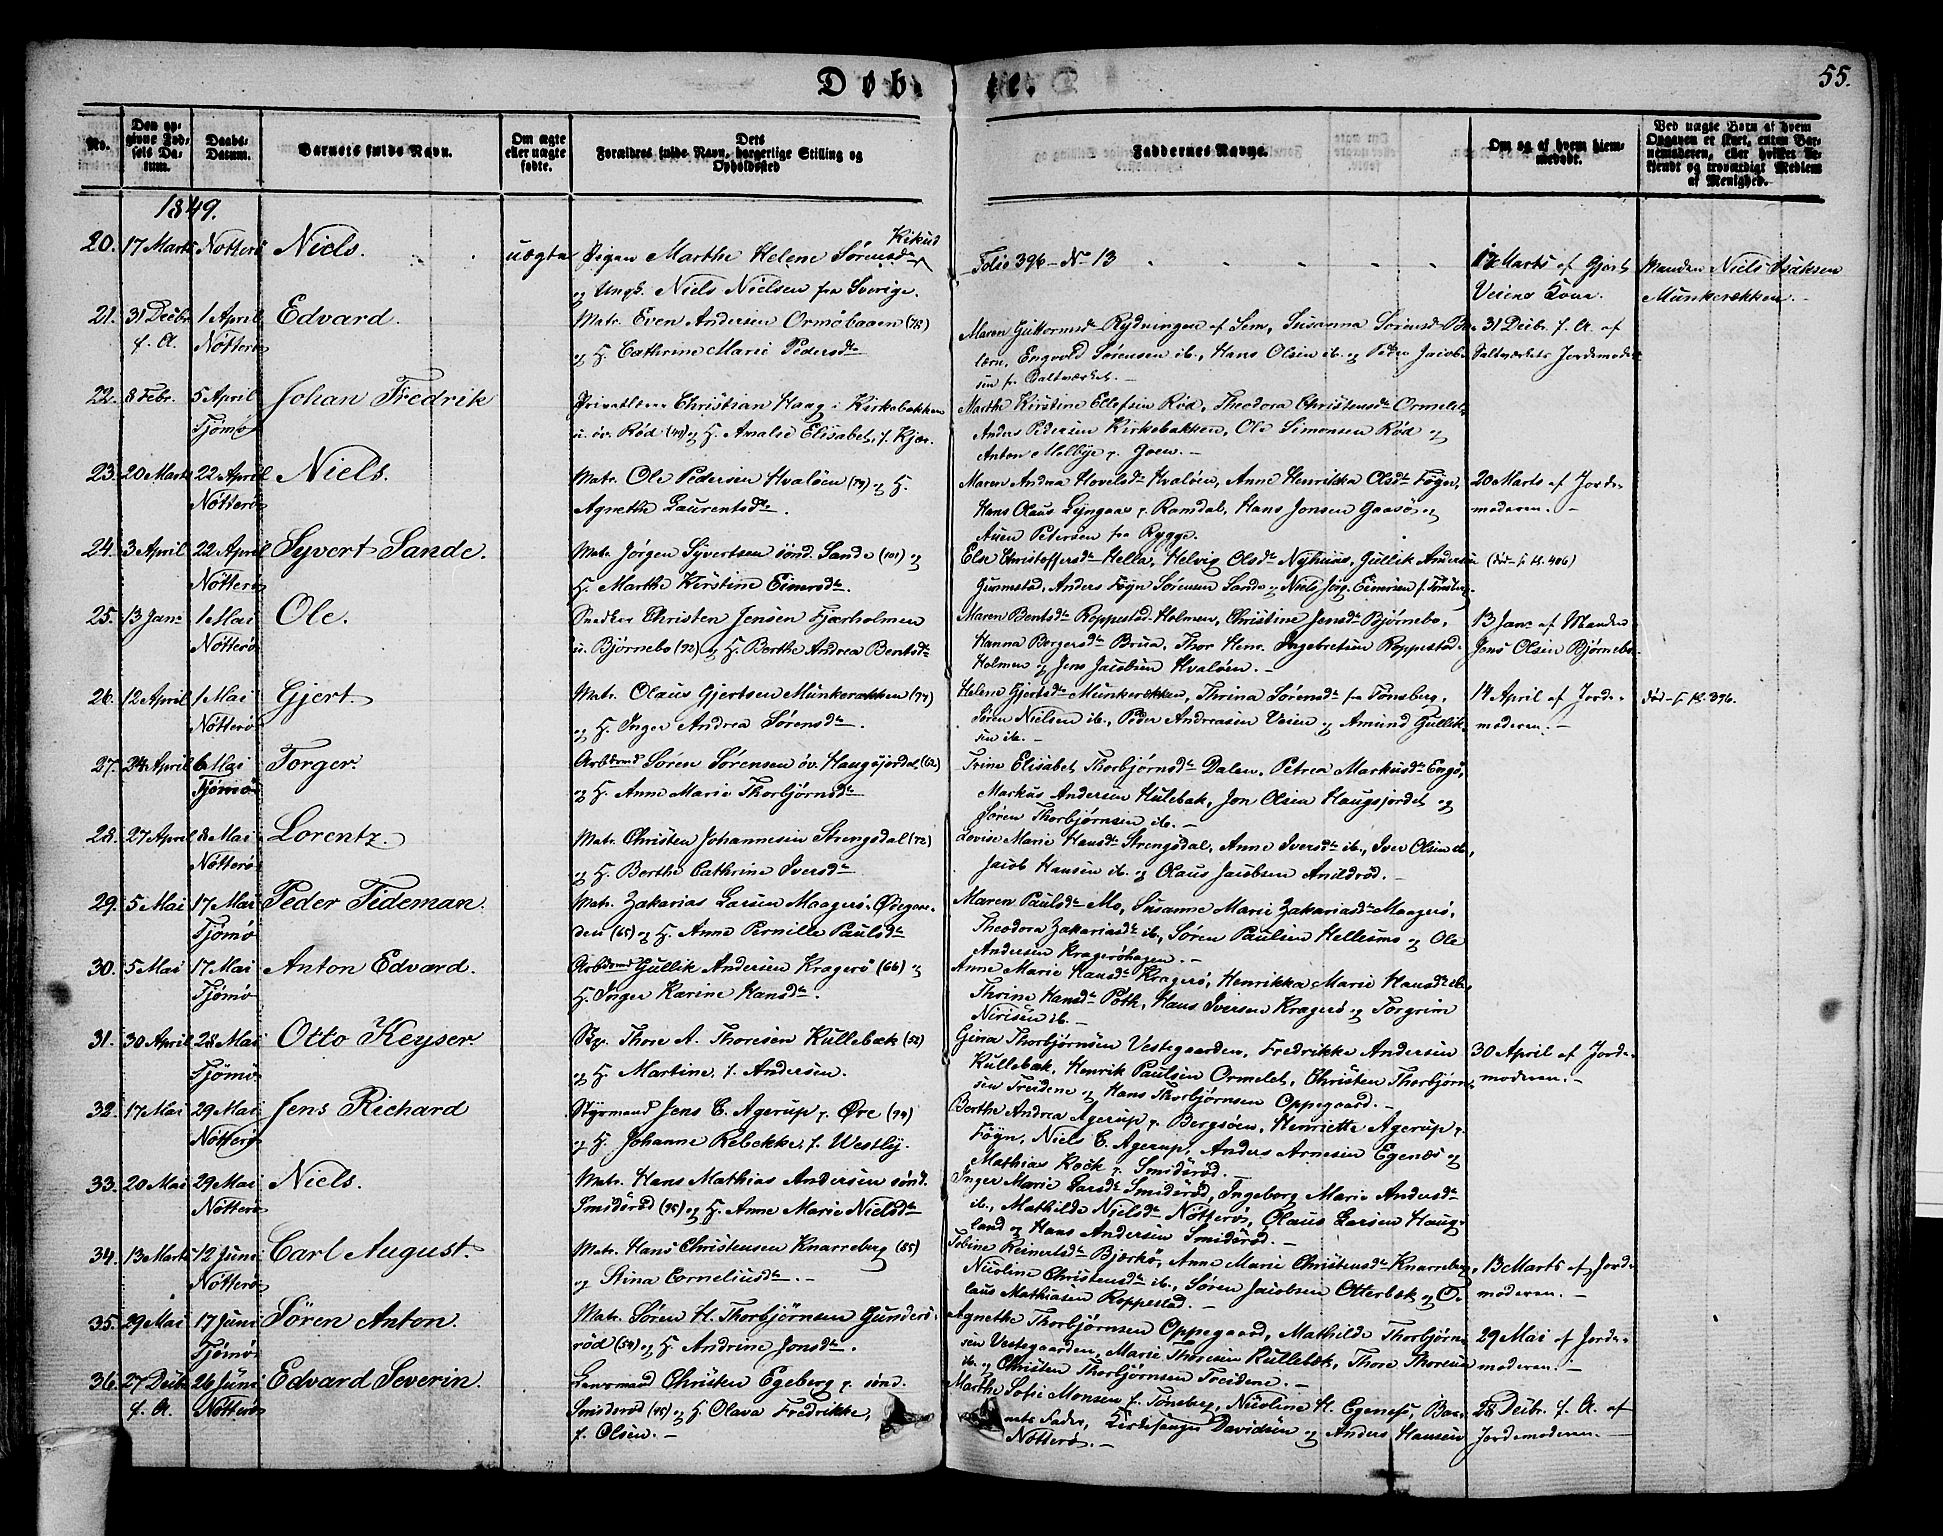 Døbte.
55.
No.
Den opgivne Fødsels Datum.
Daabs-Datum.
Barnets fulde Navn.
Om ægte eller uægte fødte.
Forældres fulde Navn, borgerlige Stilling og Opholdssted
Faddernes Navne.
Om og af hvem hjemmedøbt.
1849.
20. 17 Marts Nötterö Niels. uægte Pigen Marthe Helene Sørensdr
og Ungk. Niels Nielsen fra Sverige.
Folio 396 - No 13
17 Marts af Gjert
Veiens Kone.
Manden Niels Isaksen
Munkerekken.
21. 31 Decbr f. A. 1 April Nötterö Edvard. Matr. Even Andersen Ormöbaaen (78)
og H. Cathrine Marie Pedersdr
Maren Guttormsdr Rydningen af Sem, Susanna Sörensd
Engvold Sørensen ib., Hans Olsen ib. og Peder Jacob-
sen fr. Valtværket.
31 Decbr. f. A. af
Saltværkets Jordemoder
22. 8 Febr. 5 April Tjömö Johan Fredrik Privatlærer Christian Haag i Kirkebakken
u. öv. Röd (49) og H. Amalie Elisabet, f. Kjær.
Marthe Kirstine Ellefsen Röd, Theodora Christensdr Ormelet,
Anders Pedersen Kirkebakken, Ole Simonsen Röd og
Anton Melbye p. Goen.
23. 20 Marts 22 April Nötterö Niels. Matr. Ole Pedersen Hvalöen (79) og H.
Agnethe Laurentsdr.
Maren Andrea Hovelsdr Hvalöen, Anne Henrikka Olsdr Föyen,
Hans Olaus Lyngaas p. Ramdal, Hans Jensen Gaasö og
Auen Petersen fra Rygge.
20 Marts af Jorde-
moderen.
24. 3 April 22 April Nötterö Syvert Sande. Matr. Jörgen Syvertsen sönd. Sande (101) og
H. Marthe Kirstine Eimersdr.
Else Christoffersdr Hella, Helvig Olsdr Nyhuus, Gullik Andersen
Gurmstad, Anders Föyn Sörensen Sande og Niels Jörg. Eimersen f. Tönsberg.
(död - f. Fol. 406)
25. 13 Janr 1 Mai Nötterö Ole. Snedker Christen Jensen Fjærholmen
u. Björnebo (92) og H. Berthe Andrea Berntsdr
Maren Berntsdr Roppestad-Holmen, Christine Jensdr Björnebo,
Hanna Borgersdr Brua, Thor Henr. Ingebretsen Roppestad-
Holmen og Jens Jacobsen Hvalöen.
13 Janr af Manden
Jens Olsen Björnebo
26. 12 April 1 Mai Nötterö Gjert. Matr. Olaus Gjertsen Munkerækken (74)
og H. Inger Andrea Sörensdr
Helene Gjertsdr Munkerækken, Thrina Sörensdr fra Tönsberg,
Sören Nielsen ib., Peder Andreasen Veien og Amund Gullik-
sen ib.
14 April af Jorde-
moderen.
död - f. Fol. 396.
27. 24 April 6 Mai Tjömö Torger. Arbsmd Sören Sörensen öv. Haugsjordet (62)
og H. Anne Marie Thorbjörnsdr
Trine Elisabet Thorbjörnsdr Dalen, Petrea Markusdr Engö,
Markus Andersen Hulebak, Jon Olsen Haugsjordet og
Sören Thorbjörnsen ib.
28. 27 April 8 Mai Nötterö Lorentz. Matr. Christen Johannesen Strengsdal (72)
og H. Berthe Cathrine Iversdr
Lovise Marie Hansdr Strengsdal, Anne Iversdr ib., Iver Olsen ib.,
Jacob Hansen ib. og Olaus Jacobsen Arildröd.
29. 5 Mai 17 Mai Tjömö Peder Tideman. Matr. Zakarias Larsen Maagerö-Östgaar-
den (65) og H. Anne Pernille Paulsdr
Maren Paulsdr Mo, Susanne Marie Zakariasdr Maagerö,
Theodora Zakariasdr ib., Sören Paulsen Hellesmo og Ole
Andersen Krageröhagen.
30. 5 Mai 17 Mai Tjömö Anton Edvard. Arbsmd Gullik Andersen Kragerö (66) og
H. Inger Karine Hansdr.
Anne Marie Hansdr Kragerö, Henrikka Marie Hansdr ib.,
Thrine Hansdr Poth, Hans Iversen Kragerö og Torgrim
Nirisen ib.
31. 30 April 28 Mai Tjömö Otto Keyser Skp. Thore A. Thoresen Kullebæk (52)
og H. Martine, f. Andersen.
Gina Thorbjörnsen Vestegaarden, Fredrikke Andersen
Kullebæk, Henrik Paulsen Ormelet, Christen Thorbjörn-
sen Treidene og Hans Thorbjörnsen Oppegaard.
30 April af Jorde-
moderen.
32. 17 Mai 29 Mai Nötterö Jens Richard Styrmand Jens C. Agerup p. Öre (94)
og H. Johanne Rebekke, f. Westly.
Berthe Andrea Agerup p. Bergsöen, Henriette Agerup p.
Föyn, Niels C. Agerup, Anders Arnesen Egenæs og
Mathias Kock p. Smideröd.
33. 20 Mai 29 Mai Nötterö Niels. Matr. Hans Mathias Andersen sönd.
Smideröd (95) og H. Anne Marie Nielsdr
Inger Marie Larsdr Smideröd, Ingeborg Marie Andersdr
ib., Mathilde Nielsdr Nötterö, Olaus Larsen Haug-
land og Hans Andersen Smideröd.
34. 13 Marts 12 Juni Nötterö Carl August. Matr. Hans Christensen Knarreberg (85)
og Stina Corneliusdr.
Tobine Reinertsdr Bjerkö, Anne Marie Christensdr Knarreberg,
Nicoline Christensdr ib., Sören Jacobsen Otterbæk og O-
laus Mathiasen Roppestad.
13 Marts af Jorde-
moderen.
35. 29 Mai 17 Juni Tjömö Sören Anton. Matr. Sören H. Thorbjörnsen Gunders-
röd (54) og H. Andrine Jonsdr.
Agnethe Thorbjörnsen Oppegaard, Mathilde Thorbjörn-
sen Vestegaarden, Marie Thoresen Kullebæk, Thore Thoresen
ib. og Christen Thorbjörnsen Treidene.
29 Mai af Jorde-
moderen.
36. 27 Decbr f. A. 26 Juni Nötterö Edvard Severin. Lensmand Christen Egeberg p. sönd.
Smideröd (95) og H. Olava Fredrikke,
f. Olsen.
Marthe Sofie Monsen f. Tönsberg, Nicoline H. Egenæs, Bar-
nets Fader, Kirkesanger Davidsen og Anders Hansen
Nötterö.
28 Decbr. f. A. af
Jordemoderen.